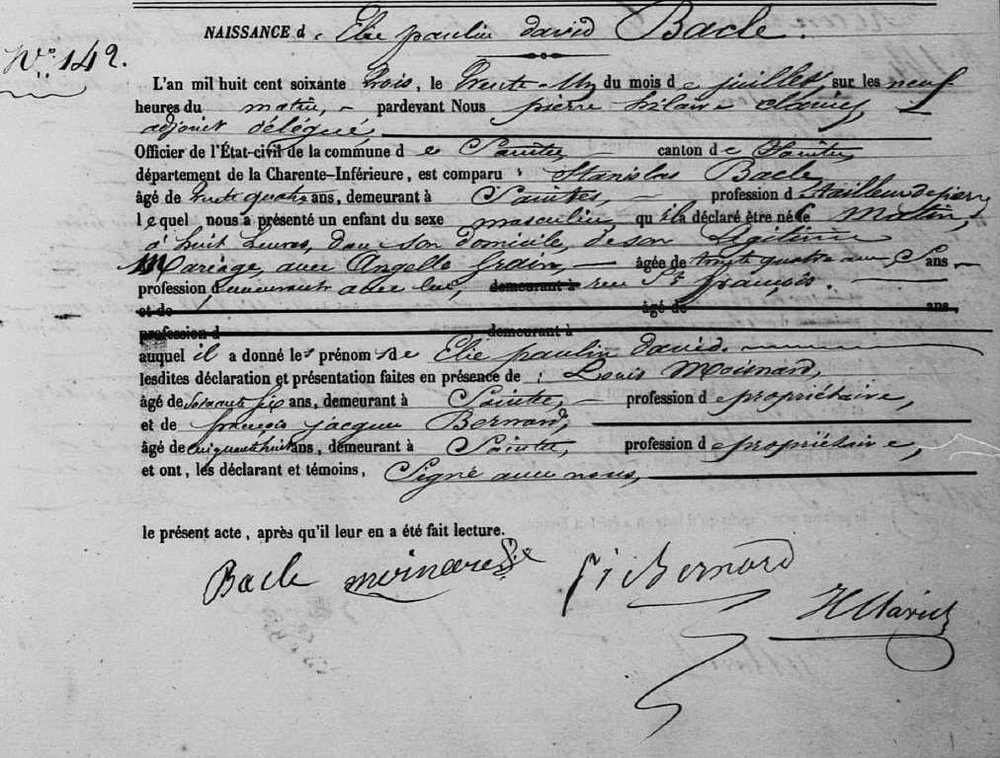 NAISSANCE d e Elie paulin david Bacle.
N°. 142.
L'an mil huit cent soixante trois, le trente un du mois de juillet, sur les neuf
heures du matin, pardevant Nous pierre hilaire
adjoint délégué
Officier de l'État-civil de la commune d e Saintes, canton d e Saintes
département de la Charente-Inférieure, est comparu : Stanislas Bacle
âgé de trente quatre ans, demeurant à Saintes, profession d e tailleur de pierre
lequel nous a présenté un enfant du sexe masculin, qu'il a déclaré être né ce Matin,
à huit heures, dans son domicile, de son Légitime
Mariage, avec Angelle Grain, âgée de trente quatre ans, Sans
profession, demeurant avec lui, demeurant à rue St françois.
et de âgé de ans,
profession d demeurant à
auquel il a donné les prénoms de Elie paulin david.
lesdites déclaration et présentation faites en présence de : Louis Moisnard,
âgé de soixante six ans, demeurant à Saintes, profession d e propriétaire,
et de françois jacques Bernard,
âgé de cinquante huit ans, demeurant à Saintes, profession d e propriétaire,
et ont, les déclarant et témoins, Signé avec nous,
le présent acte, après qu'il leur en a été fait lecture.
Bacle moinard fs Bernard